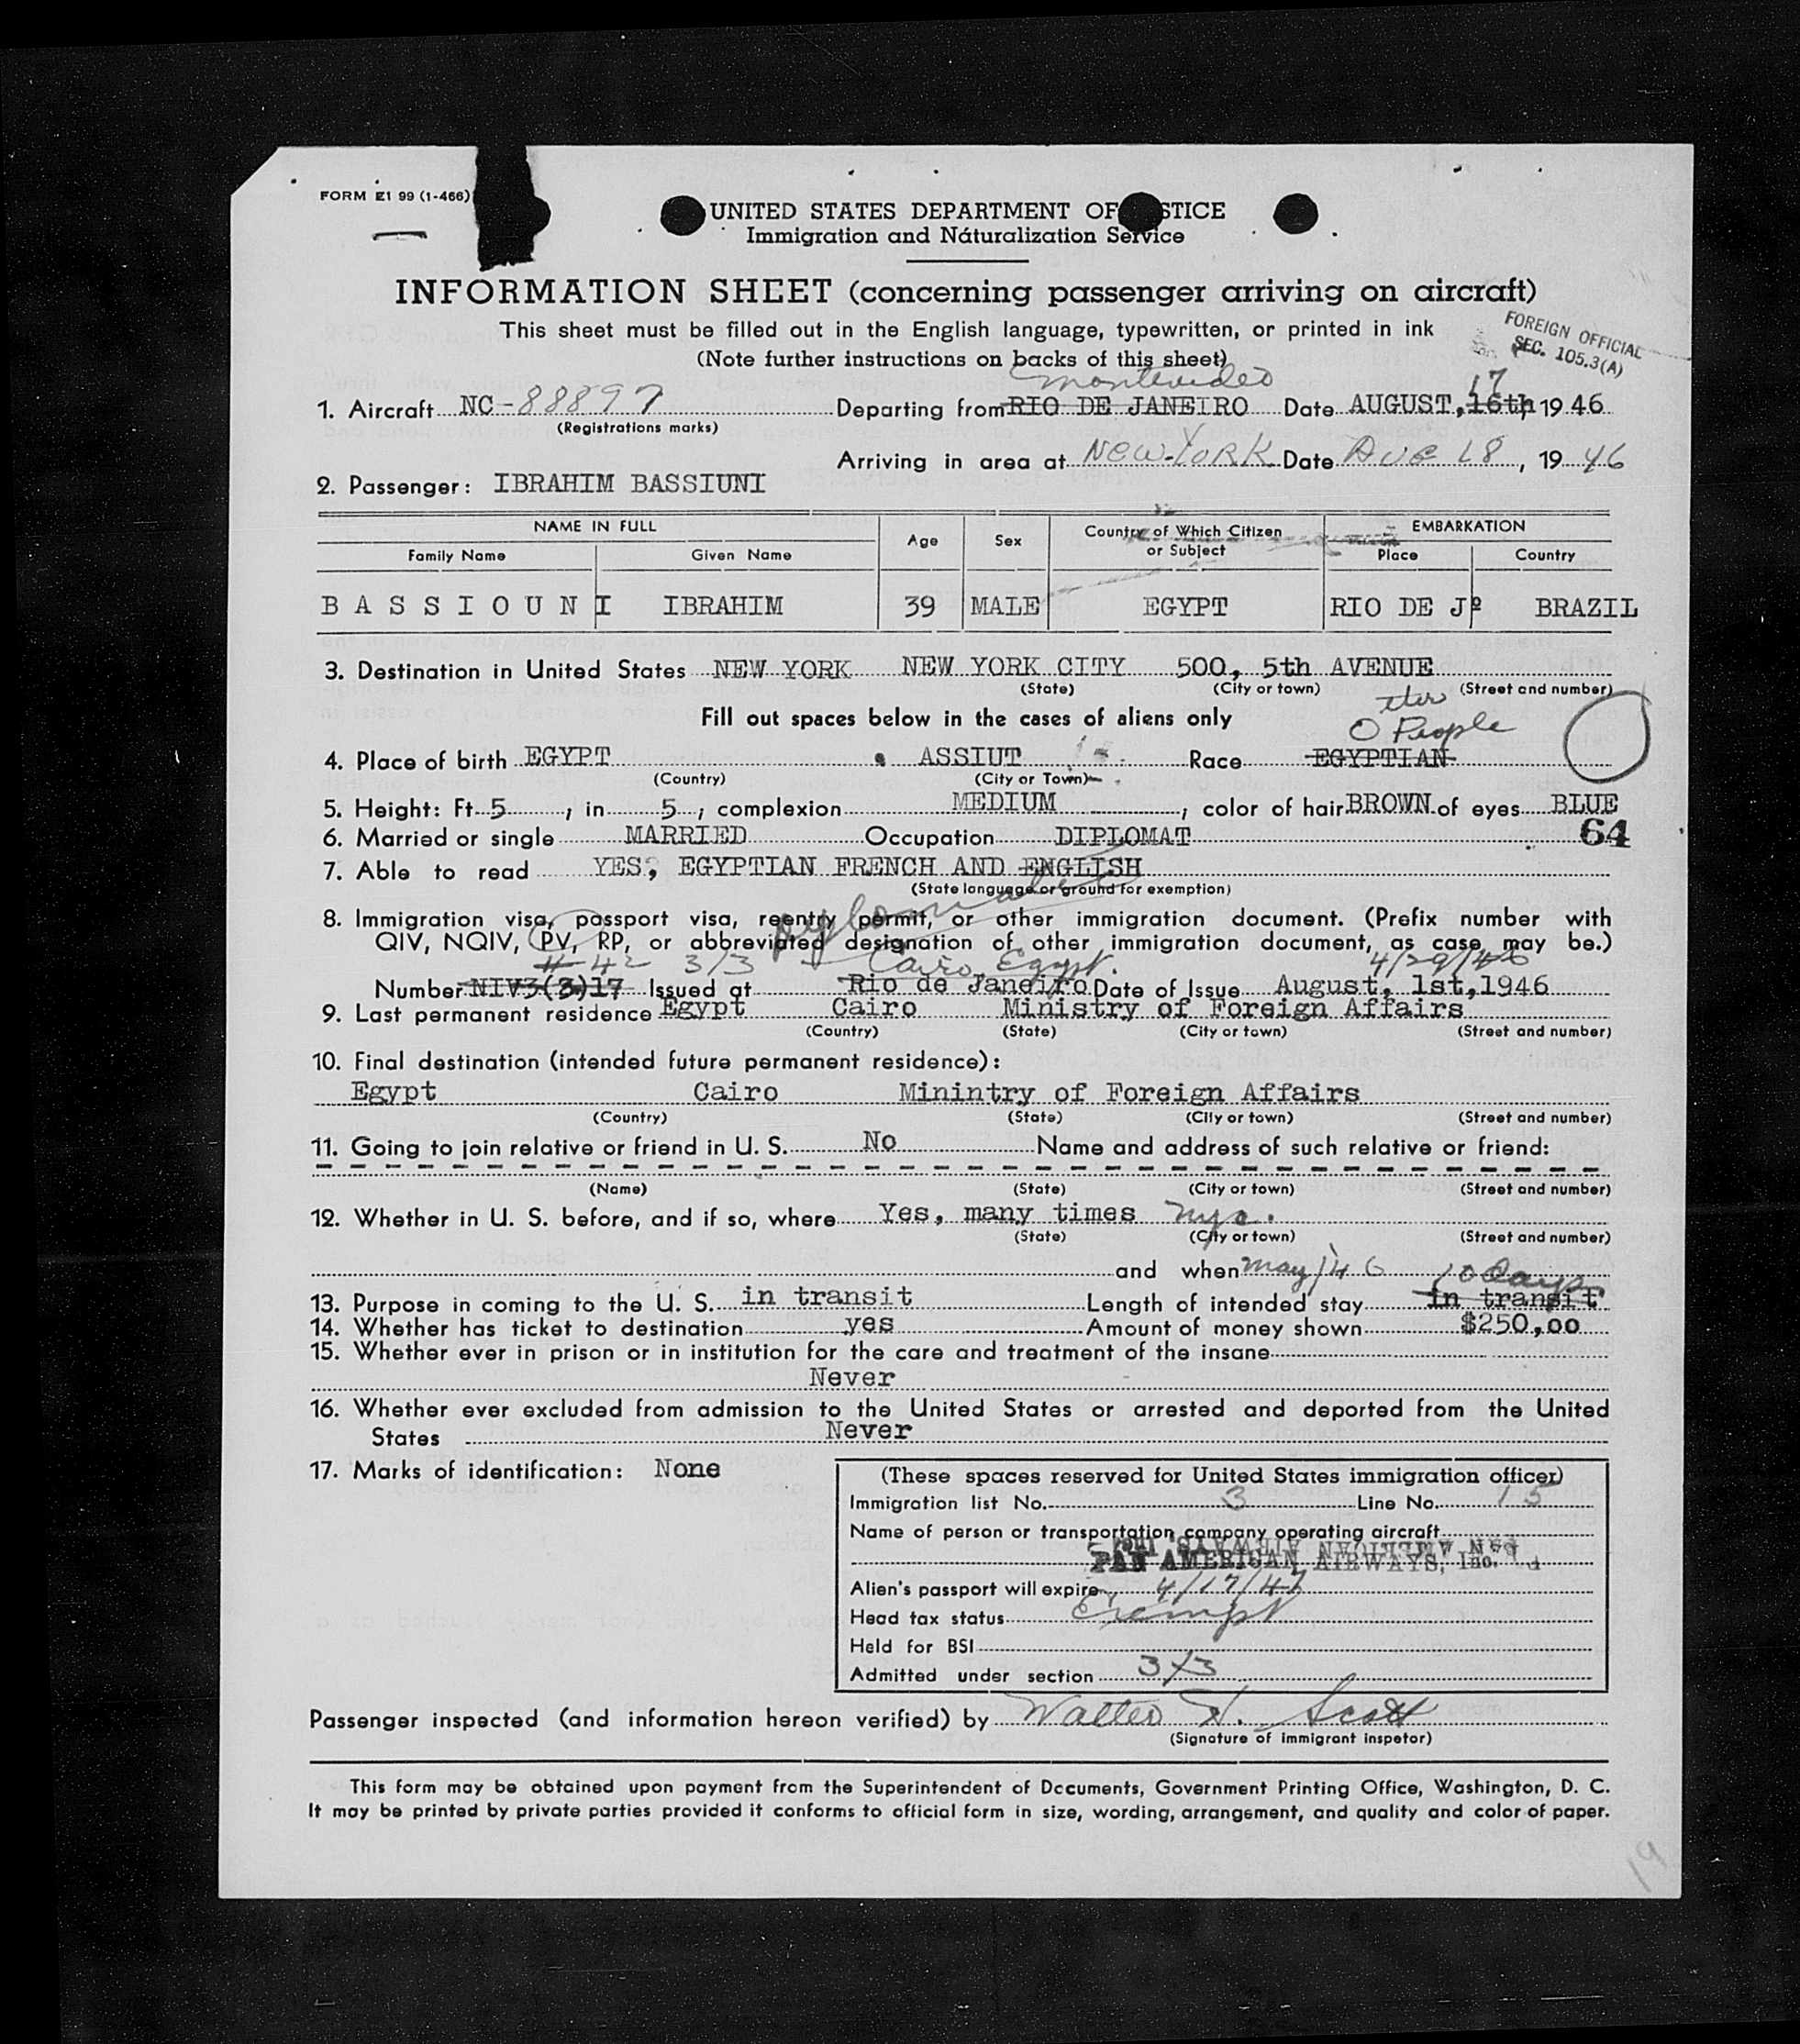 FORM I-199 (1-466)
UNITED STATES DEPARTMENT OF STICE
Immigration and Naturalization Service
INFORMATION SHEET (concerning passenger arriving on aircraft)
This sheet must be filled out in the English language, typewritten, or printed in ink
FOREIGN OFFICIAL
SEC. 105.3(A)
(Note further instructions on backs of this sheet)
Montevideo 17
1. Aircraft NC-88897 Departing from RIO DE JANEIRO Date AUGUST, 16th, 1946
(Registrations marks)
Arriving in area at NEW-YORK Date AUG 18, 1946
2. Passenger: IBRAHIM BASSIUNI
NAME IN FULL Age Sex Country of Which Citizen or Subject EMBARKATION
Family Name Given Name Place Country
BASSIOUNI IBRAHIM 39 MALE EGYPT RIO DE Jº BRAZIL
3. Destination in United States NEW YORK NEW YORK CITY 500, 5th AVENUE
(State) (City or town) (Street and number)
Fill out spaces below in the cases of aliens only
O People
4. Place of birth EGYPT ASSIUT Race EGYPTIAN
(Country) (City or Town)
5. Height: Ft. 5, in 5, complexion MEDIUM, color of hair BROWN of eyes BLUE
6. Married or single MARRIED Occupation DIPLOMAT 64
7. Able to read YES, EGYPTIAN FRENCH AND ENGLISH
(State language or ground for exemption)
8. Immigration visa, passport visa, reentry permit, or other immigration document. (Prefix number with
QIV, NQIV, PV, RP, or abbreviated designation of other immigration document, as case may be.)
42 3/3 Cairo, Egypt. 4/29/46
Number NIV3(3)17 Issued at Rio de Janeiro Date of Issue August, 1st, 1946
9. Last permanent residence Egypt Cairo Ministry of Foreign Affairs
(Country) (State) (City or town) (Street and number)
10. Final destination (intended future permanent residence):
Egypt Cairo Minintry of Foreign Affairs
(Country) (State) (City or town) (Street and number)
11. Going to join relative or friend in U. S. No Name and address of such relative or friend:
(Name) (State) (City or town) (Street and number)
12. Whether in U. S. before, and if so, where Yes, many times nyc.
(State) (City or town) (Street and number)
and when May/46 10 Days
13. Purpose in coming to the U. S. in transit Length of intended stay in transit
14. Whether has ticket to destination yes Amount of money shown $250,00
15. Whether ever in prison or in institution for the care and treatment of the insane
Never
16. Whether ever excluded from admission to the United States or arrested and deported from the United
States Never
17. Marks of identification: None
(These spaces reserved for United States immigration officer)
Immigration list No. 3 Line No. 15
Name of person or transportation company operating aircraft
PAN AMERICAN AIRWAYS, Inc.
Alien's passport will expire 4/17/47
Head tax status Exempt
Held for BSI
Admitted under section 3/3
Passenger inspected (and information hereon verified) by Walter H. Scott
(Signature of immigrant inspetor)
This form may be obtained upon payment from the Superintendent of Documents, Government Printing Office, Washington, D. C.
It may be printed by private parties provided it conforms to official form in size, wording, arrangement, and quality and color of paper.
19